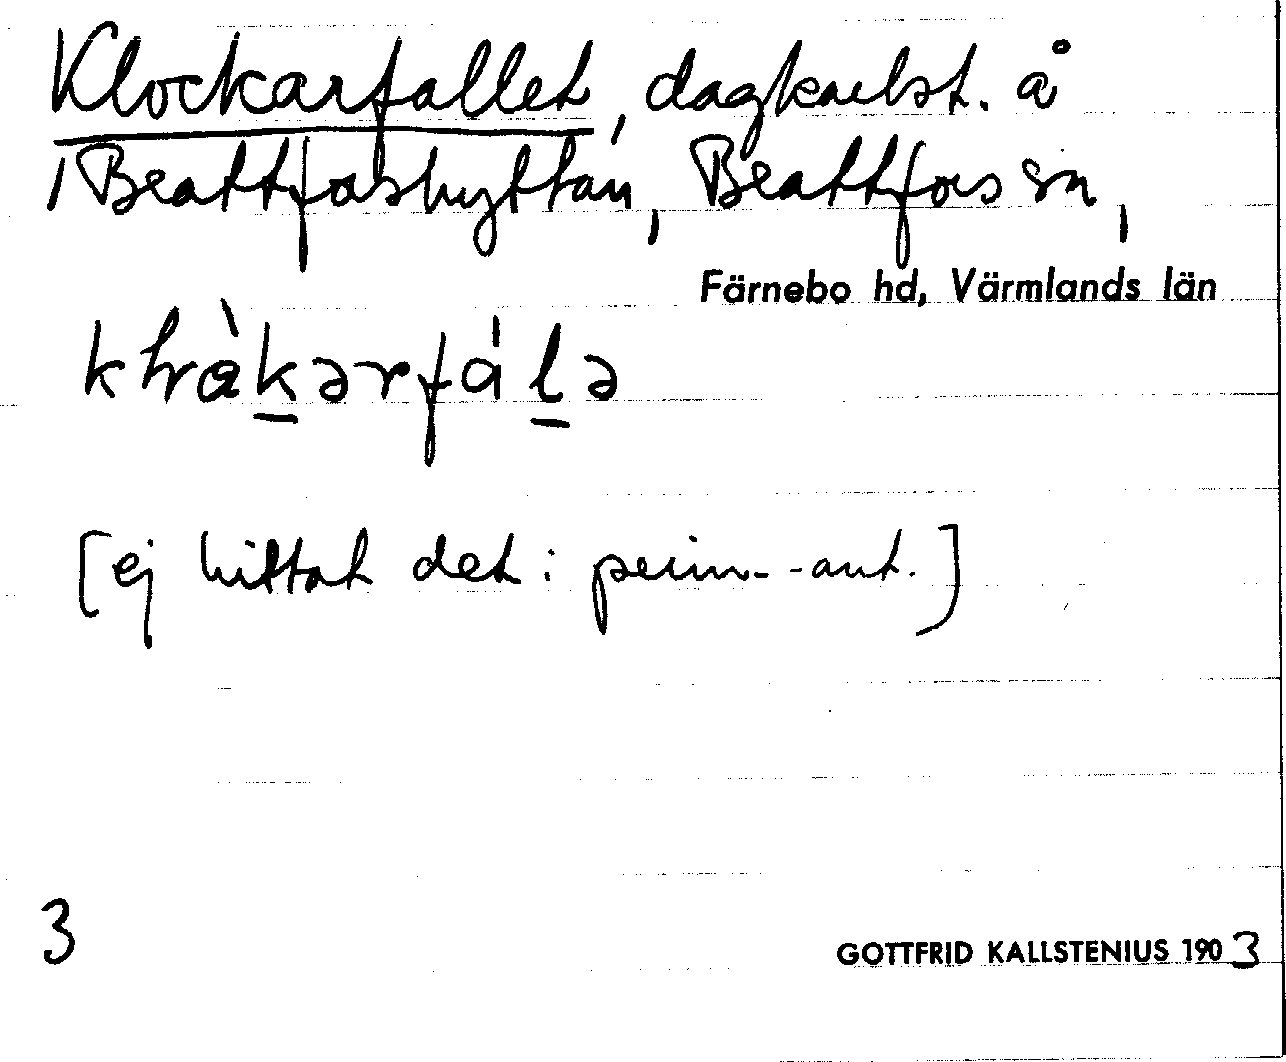 Klockarfallet, dagkarlst. å
1 Beattforshyttan, Beattfors sn,
Färnebo hd, Värmlands län
[ej hittat det: prim.-ant.]
3
GOTTFRID KALLSTENIUS 1903